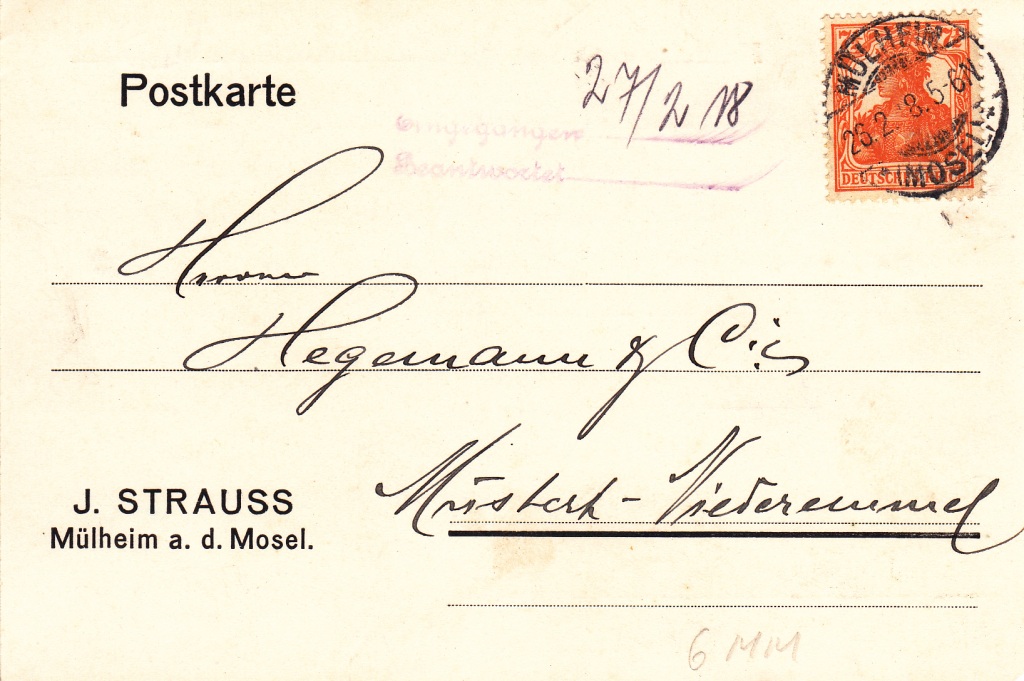 Postkarte
27/2 18
Eingegangen
Beantwortet
7 7
DEUTSCHES
MÜLHEIM
26.2.18.5-6N
(MOSEL)
Herrn
Hegemann & Cie
Müstert-Niederemmel
J. STRAUSS
Mülheim a. d. Mosel.
6 MM